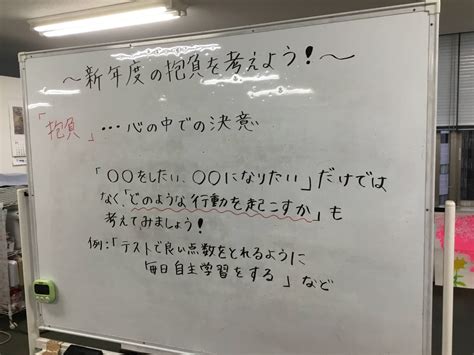 ～新年度の抱負を考えよう！～
「抱負」…心の中での決意
「〇〇をしたい、〇〇になりたい」だけでは
なく、「どのような行動を起こすか」も
考えてみましょう！
例：「テストで良い点数をとれるように
毎日自主学習をする」など